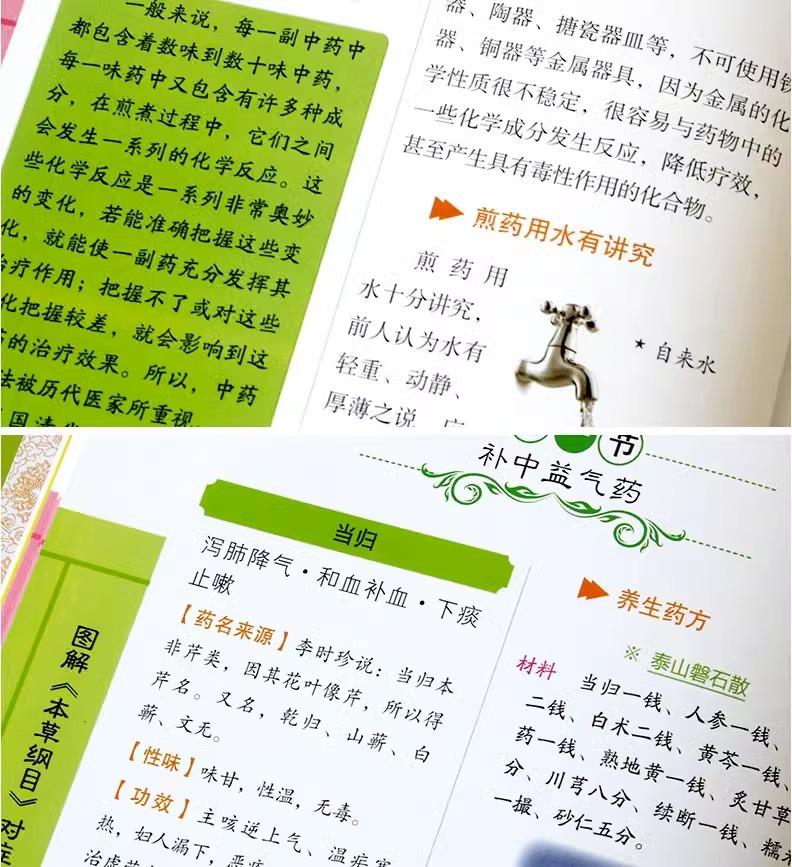 一般来说，每一副中药中
都包含着数味到数十味中药，
每一味药中又包含有许多种成
分，在煎煮过程中，它们之间
会发生一系列的化学反应。这
些化学反应是一系列非常奥妙
的变化，若能准确把握这些变
化，就能使一副药充分发挥其
治疗作用；把握不了或对这些
化把握较差，就会影响到这
的治疗效果。所以，中药
法被历代医家所重视
器、陶器、搪瓷器皿等，不可使用铁
器、铜器等金属器具，因为金属的化
学性质很不稳定，很容易与药物中的
一些化学成分发生反应，降低疗效，
甚至产生具有毒性作用的化合物。
煎药用水有讲究
煎药用
水十分讲究，
前人认为水有
轻重、动静、
厚薄之说
★ 自来水
节
补中益气药
图解《本草纲目》对症
当归
泻肺降气·和血补血·下痰
止嗽
【药名来源】李时珍说：当归本
非芹类，因其花叶像芹，所以得
芹名。又名，乾归、山蕲、白
蕲、文无。
【性味】味甘，性温，无毒。
【功效】主咳逆上气、温疟寒
热，妇人漏下，恶疮
养生药方
※ 泰山磐石散
材料 当归一钱、人参一钱、
二钱、白术二钱、黄芩一钱、
药一钱、熟地黄一钱、炙甘草
分、川芎八分、续断一钱、糯米
一撮、砂仁五分。